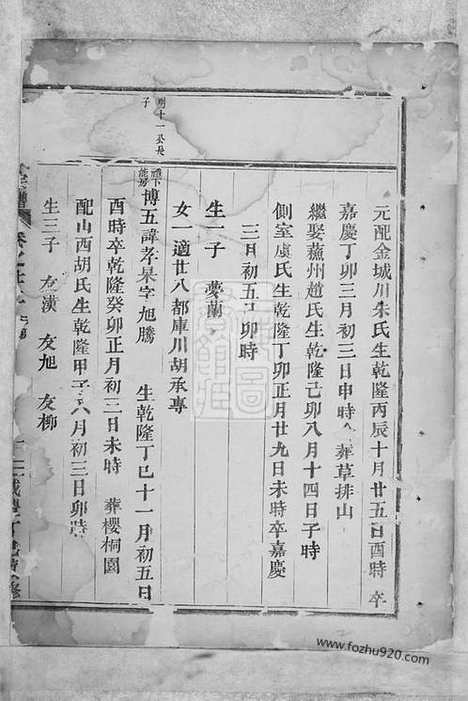 元配金城川朱氏生乾隆丙辰十月廿五日酉時 卒
嘉慶丁卯三月初三日申時 葬草排山
繼娶蕪州趙氏生乾隆己卯八月十四日子時
側室虞氏生乾隆丁卯正月廿九日未時卒嘉慶
三月初五 卯時
生一子 夢蘭
女一適廿八都庫川胡承專
博五諱孝杲字旭騰 生乾隆丁巳十一月初五日
酉時卒乾隆癸卯正月初三日未時 葬櫻桐園
配山西胡氏生乾隆甲子六月初三日卯時
生三子 友漢 友旭 友柳
十一公長
子
www.fozhu920.com